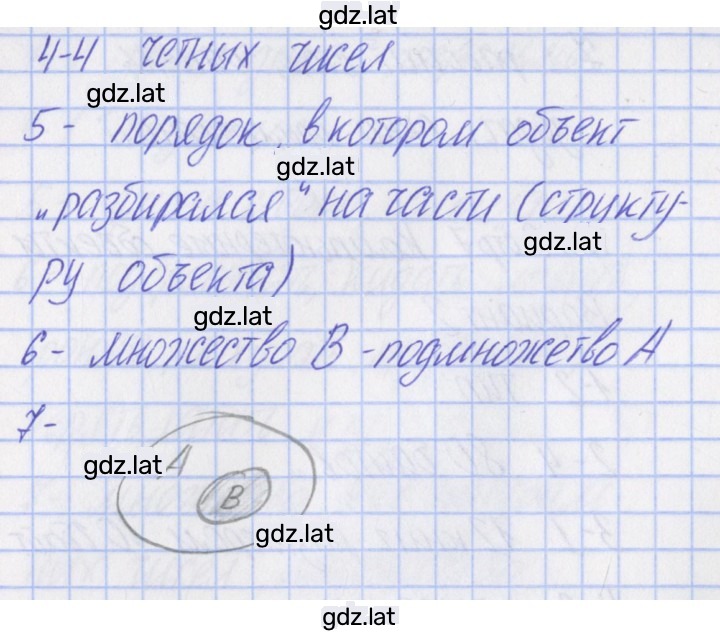 gdz.lat
4-4 четных чисел
gdz.lat
5 - порядок в котором объект
gdz.lat
„разбирался“ на части (структу-
gdz.lat
ру объекта)
gdz.lat
6 - множество В - подмножетво А
7 -
gdz.lat А
В
gdz.lat
gdz.lat